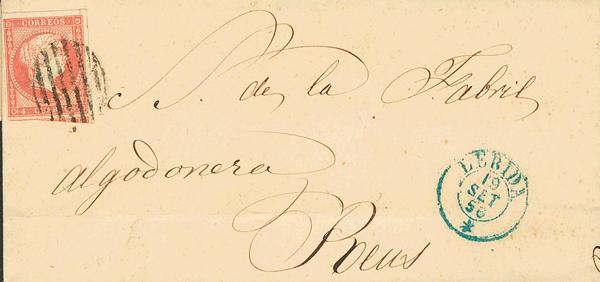 CORREOS
S. de la Fabril
algodonera
Reus
LERIDA
19
SET